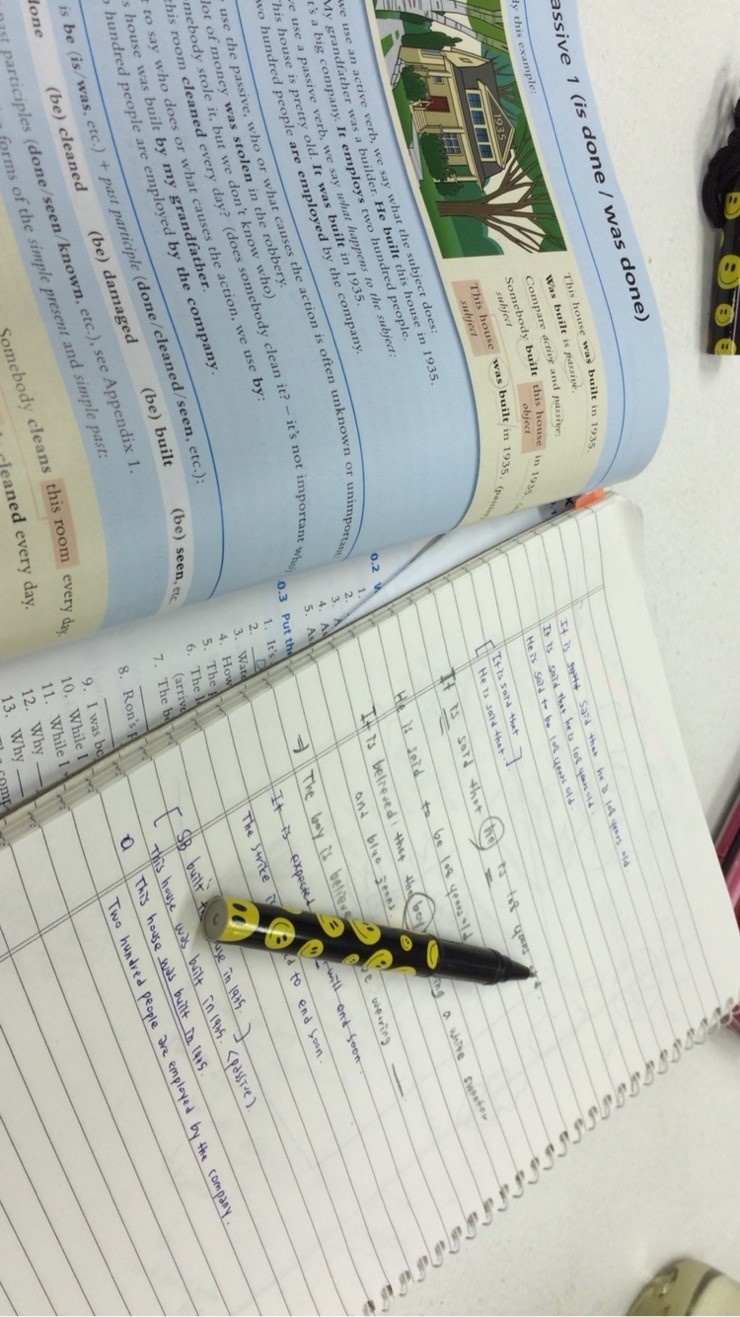 assive 1 (is done / was done)
dy this example:
1935
This house was built in 1935.
Was built is passive.
Compare active and passive:
Somebody built this house in 193
subject object
This house was built in 1935.
subject
we use an active verb, we say what the subject does:
My grandfather was a builder. He built this house in 1935.
It's a big company. It employs two hundred people.
we use a passive verb, we say what happens to the subject:
This house is pretty old. It was built in 1935.
wo hundred people are employed by the company.
use the passive, who or what causes the action is often unknown or unimportant
lot of money was stolen in the robbery.
mebody stole it, but we don't know who)
this room cleaned every day? (does somebody clean it? – it's not important who
t to say who does or what causes the action, we use by:
s house was built by my grandfather.
o hundred people are employed by the company.
is be (is/was, etc.) + past participle (done/cleaned/seen, etc.):
done (be) cleaned (be) damaged (be) built (be) seen, etc.
ast participles (done/seen/known, etc.), see Appendix 1.
forms of the simple present and simple past:
Somebody cleans this room every day.
cleaned every day.
0.2
1.
2.
3. A
4. A
5. As
0.3 Put the
1. It's
2.
3. Wate
4. How
5. The
6. The
(arriv
7. The b
8. Ron's
9. I was bo
10. While I
11. While I
12. Why
13. Why
It is said that he is 108 years old
It is said that he is 108 years old.
He is said to be 108 years old.
[It is said that]
He is said that
It is said that he is 108 years old
He is said to be 108 years old
It is believed that the boy ng a white sweater
and blue jeans.
⇒ The boy is believe wearing
It is expected will end soon.
The strike d to end soon.
[SB built use in 1935.] (passive).
This house was built in 1935.
This house was built in 1935.
Two hundred people are employed by the company.